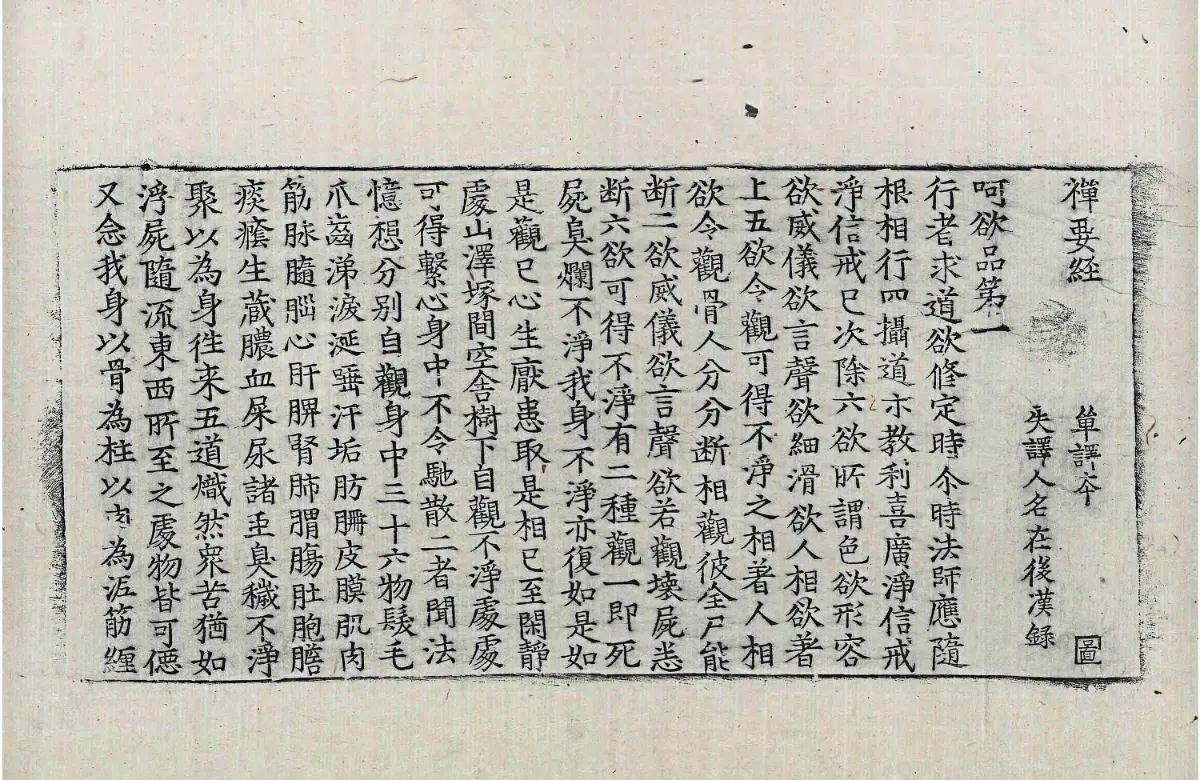 禪要経
單譯夲 圖
失譯人名在後漢録
呵欲品第一
行者求道欲修定時尒時法師應隨
根相行四攝道示教利喜廣淨信戒
淨信戒已次除六欲所謂色欲形容
欲威儀欲言聲欲細滑欲人相欲著
上五欲令觀可得不淨之相著人相
欲令觀骨人分分断相觀彼全尸能
断二欲威儀欲言聲欲若觀壊屍悉
断六欲可得不淨有二種觀一即死
屍臭爛不淨我身不淨亦復如是如
是觀已心生厭患取是相已至閑靜
處山澤塚間空舎樹下自觀不淨處處
可得繫心身中不令馳散二者聞法
憶想分别自觀身中三十六物髮毛
爪齒涕淚涎唾汗垢肪𦙱皮膜肌肉
筋脉髓腦心肝脾腎肺胃膓肚胞膽
痰癊生蔵膿血屎尿諸虫臭穢不淨
聚以為身徃来五道熾然衆苦猶如
浮屍隨流東西所至之處物皆可𢙣
又念我身以骨為柱以肉為泥筋纏